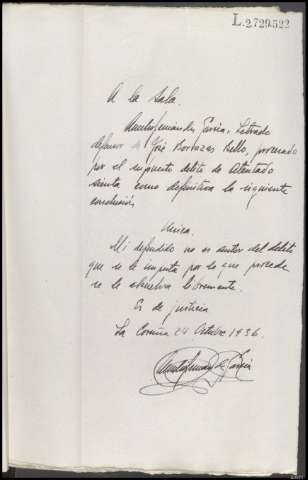 L.2729.522
A la Sala.
Fernandez Garcia, Letrado
defensor de José Borrazas Bello, procesado
por el supuesto delito de Atentado
sienta como definitiva la siguiente
conclusión
Unica.
Mi defendido no es autor del delito
que se le imputa por lo que procede
se le absuelva libremente.
Es de justicia
La Coruña 24 Octubre 1936.